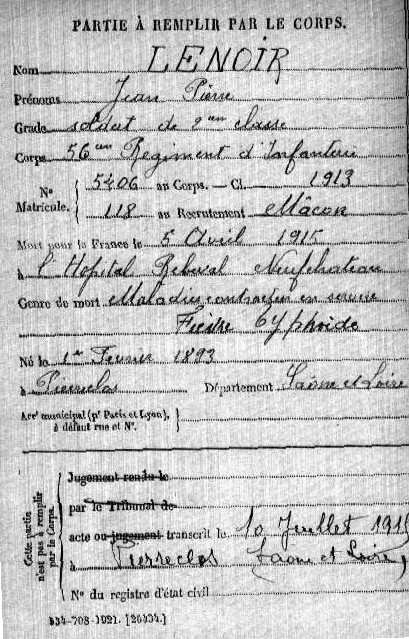 PARTIE À REMPLIR PAR LE CORPS.
Nom LENOIR
Prénoms Jean Pierre
Grade soldat de 2em classe
Corps 56em Regiment d'Infanterie
N° Matricule. 5406 au Corps. — Cl. 1913
118 au Recrutement Mâcon
Mort pour la France le 5 Avril 1915
à l'Hopital Rebeval Neufchateau
Genre de mort Maladie contractée en service
Fievre typhoide
Né le 1er Fevrier 1893
à Pierreclos Département Saône et Loire
Arrt municipal (pr Paris et Lyon),
à défaut rue et N°.
Cette partie
n'est pas à remplir
par le Corps.
Jugement rendu le
par le Tribunal de
acte ou jugement transcrit le 10 Juillet 1915
à Pierreclos Saone et Loire
N° du registre d'état civil
534-708-1921. [26434.]